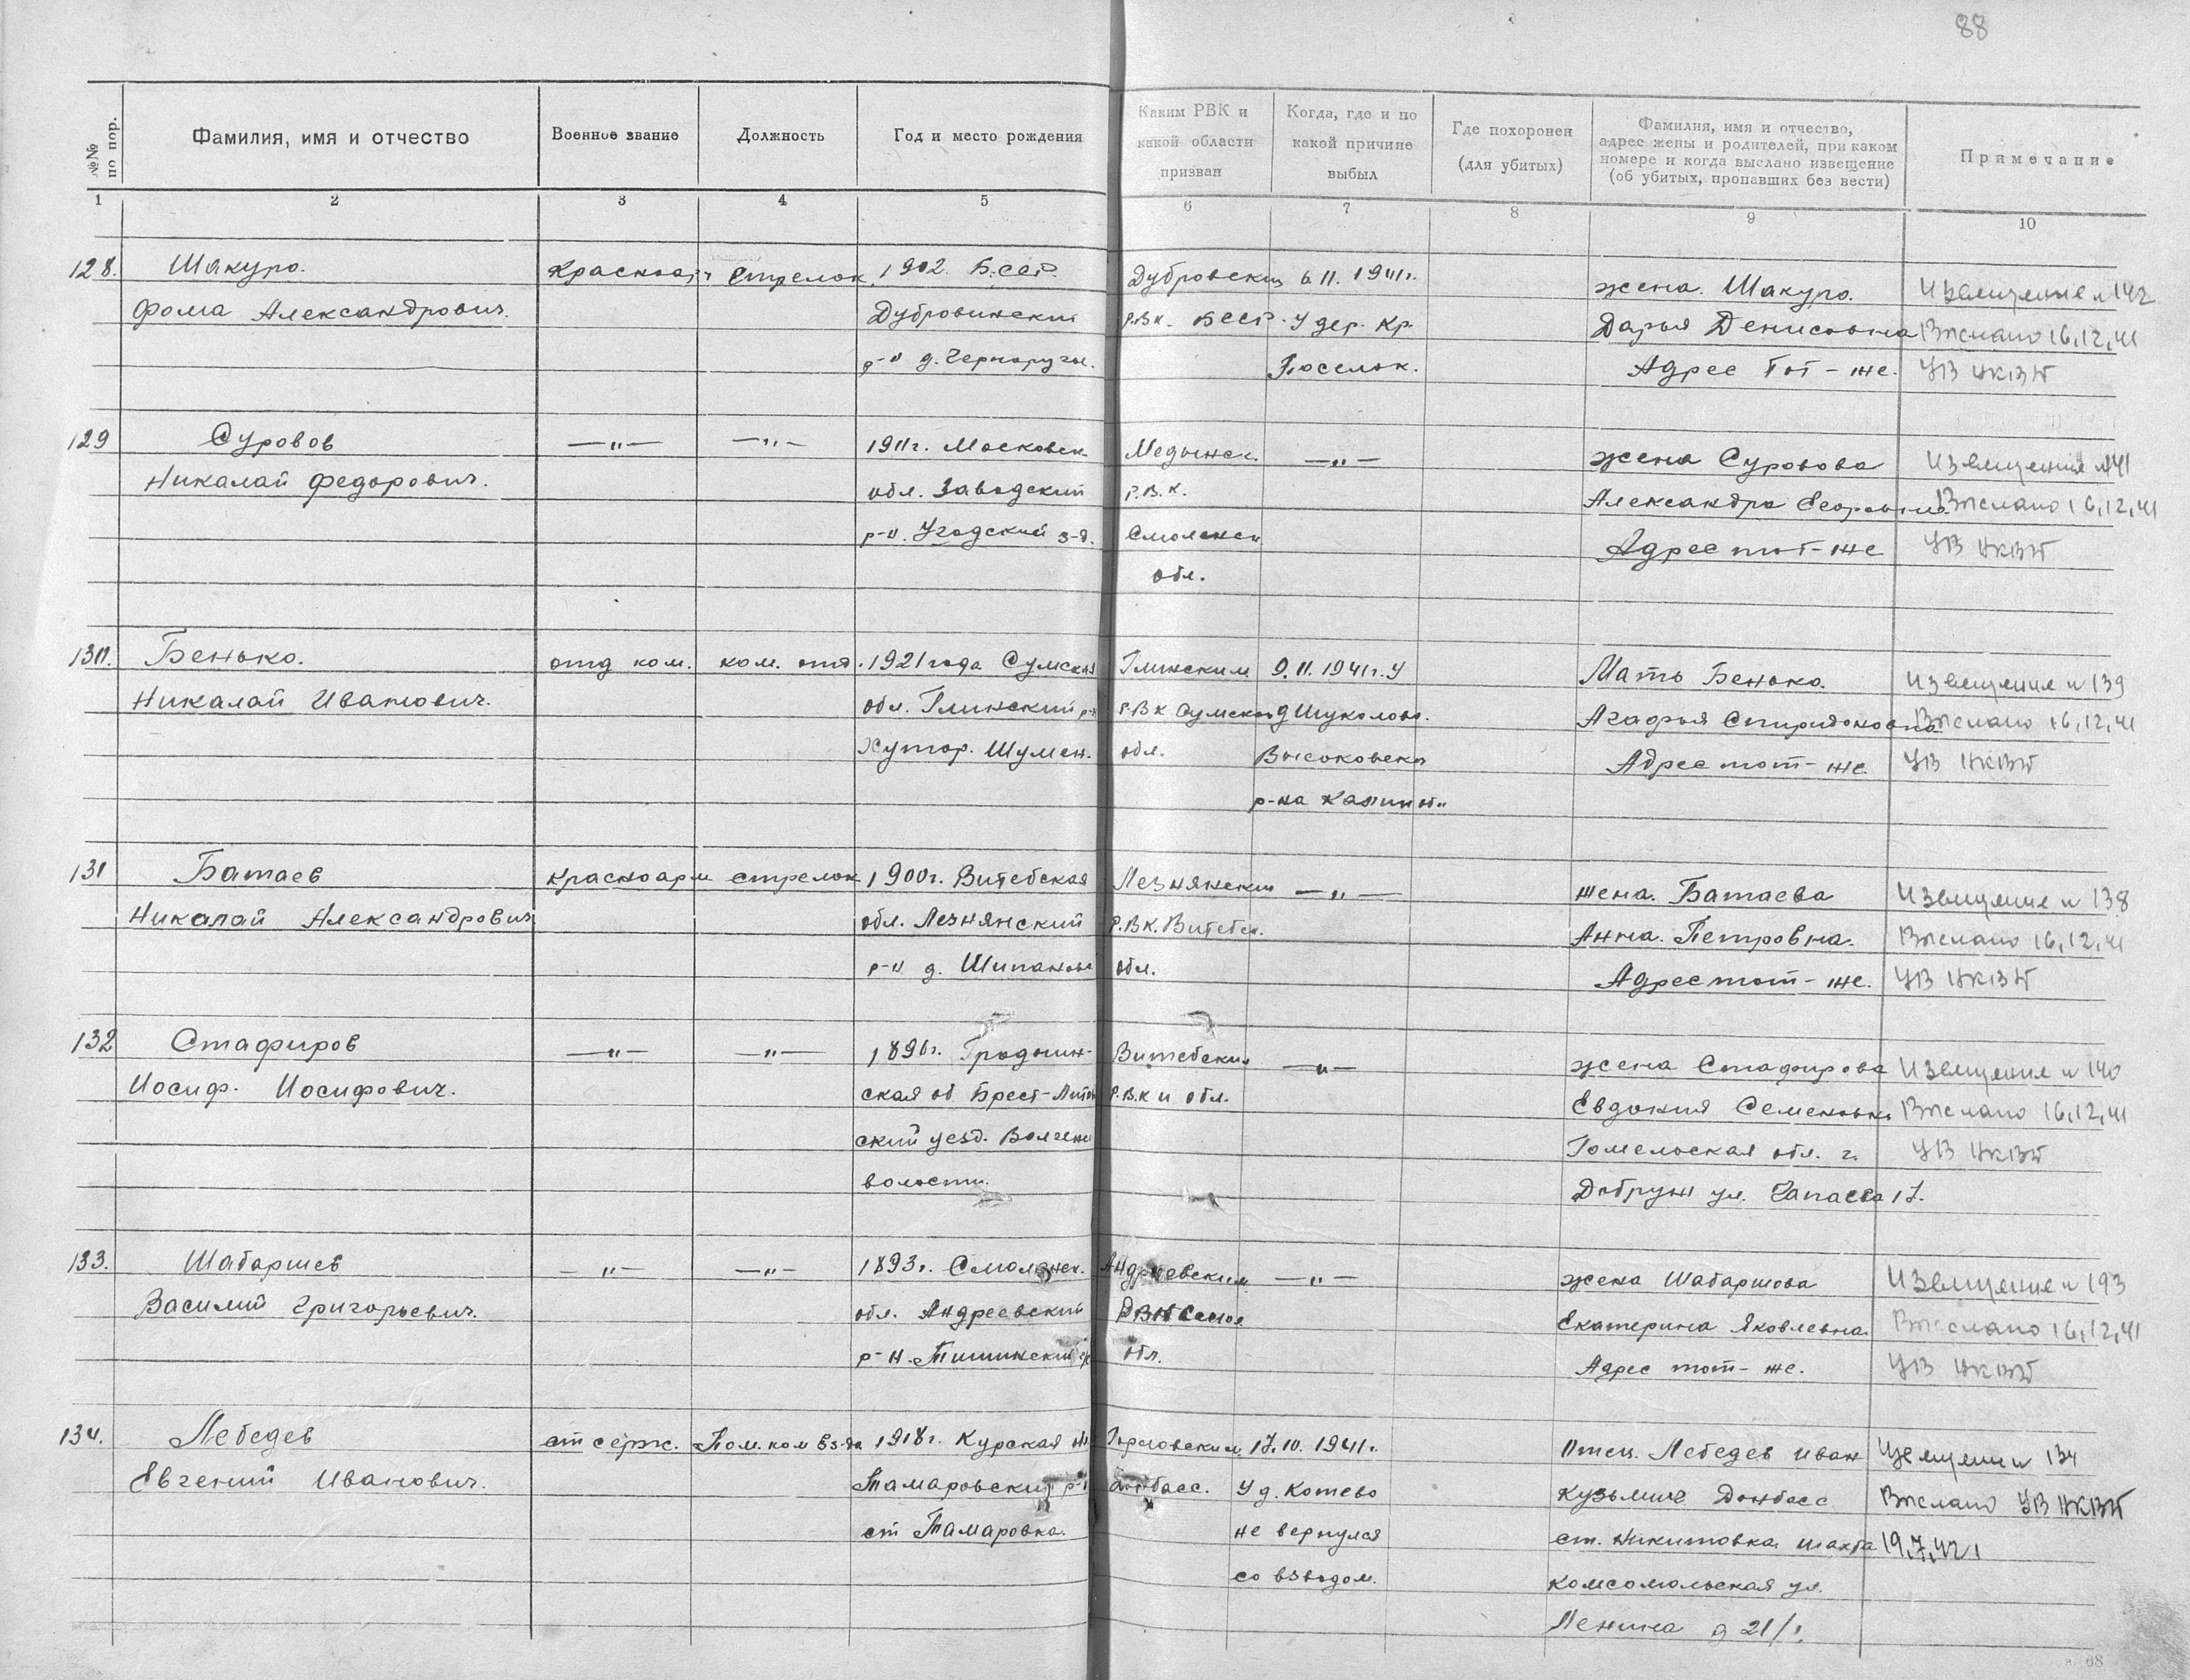 88
№№ по пор.
Фамилия, имя и отчество
Военное звание
Должность
Год и место рождения
Каким РВК и
какой области
призван
Когда, где и по
какой причине
выбыл
Где похоронен
(для убитых)
Фамилия, имя и отчество,
адрес жены и родителей, при каком
номере и когда выслано извещение
(об убитых, пропавших без вести)
Примечание
1 2 3 4 5 6 7 8 9 10
128. Шакуро. Красноар Стрелок 1902. БССР. Дубровским 6.11.1941г. жена. Шакуро. Извещение н 142
Фома Александрович. Дубровинский Р.В.К. БССР. У дер. Кр. Дарья Денисовна Выслано 16,12,41
р-н д. Черноручье. Поселок. Адрес тот-же. УВ НКВД
129 Суровов —"— —"— 1911г. Московск. Медынск. —"— жена Суровова Извещение н 141
Николай Федорович. обл. Заводский Р.В.К. Александра Егоровна Выслано 16,12,41
р-н. Угодский з-д. Смоленск Адрес тот-же УВ НКВД
обл.
130. Бенько. отд ком. ком. отд. 1921 года Сумская Глинским 9.11.1941г. У Мать Бенько. Извещение н 139
Николай Иванович. обл. Глинский р-н Р.В.К Сумской д Шуколово. Агафья Спиридоновна Выслано 16,12,41
Хутор. Шумен. обл. Высоковск Адрес тот-же. УВ НКВД
р-на Калин
131 Батаев красноарм стрелок 1900г. Витебская Лезнянским —"— жена. Батаева Извещение н 138
Николай Александрович обл. Лезнянский Р.В.К. Витебск. Анна. Петровна. Выслано 16,12,41
р-н д. Шипаново обл. Адрес тот-же. УВ НКВД
132 Стафиров —"— —"— Гроднин- Витебским —"— жена Стафирова Извещение н 140
Иосиф. Иосифович. ская об Брест-Литов Р.В.К и обл. Евдокия Семеновна Выслано 16,12,41
ский уезд. Гомельская обл. г. УВ НКВД
волости. Добруж ул. Чапаева 17.
133. Шабаршев —"— —"— 1893г. Смоленск. Андреевским —"— жена Шабаршова Извещение н 193
Василий Григорьевич. обл. Андреевский РВК Смол Екатерина Яковлевна. Выслано 16,12,41
р-н. Тишинский обл. Адрес тот-же. УВ НКВД
134. Лебедев ст серж. Пом. ком вз-да 1918г. Курская Горловским 17.10.1941г. Отец. Лебедев Иван 134
Евгений Иванович. Тамаровский р-н Донбасс. У д. Котево Кузьмич Донбасс Выслано УВ НКВД
ст Тамаровка. не вернулся ст. Никитовка шахта 19,7,42
со взводом. Комсомольская ул.
Ленина д 21/1.
68